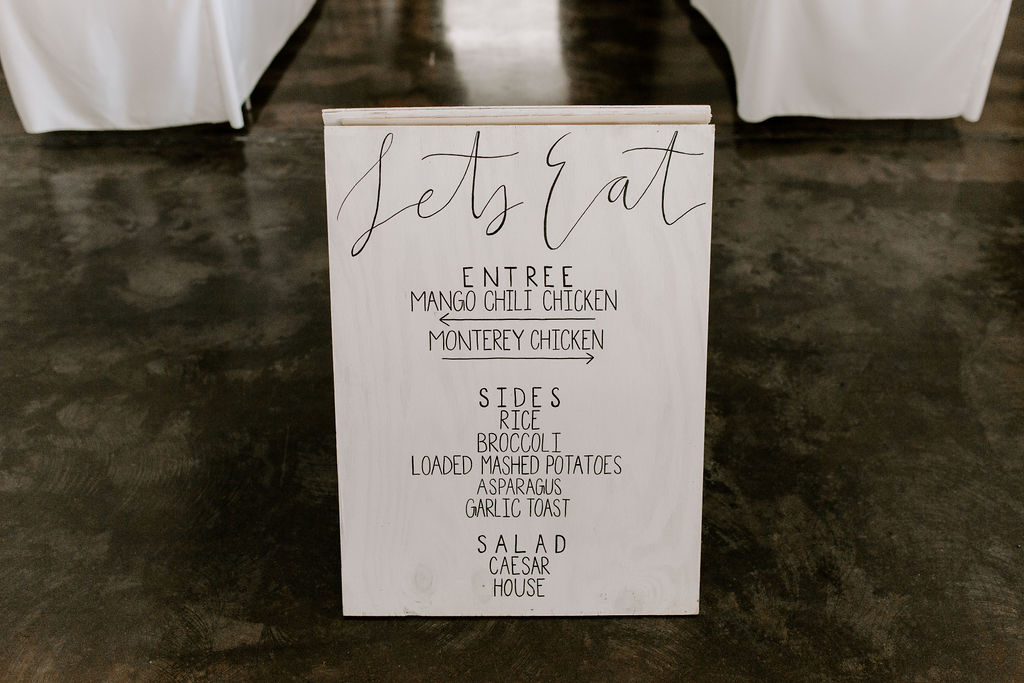 Lets Eat
ENTREE
MANGO CHILI CHICKEN
MONTEREY CHICKEN
SIDES
RICE
BROCCOLI
LOADED MASHED POTATOES
ASPARAGUS
GARLIC TOAST
SALAD
CAESAR
HOUSE